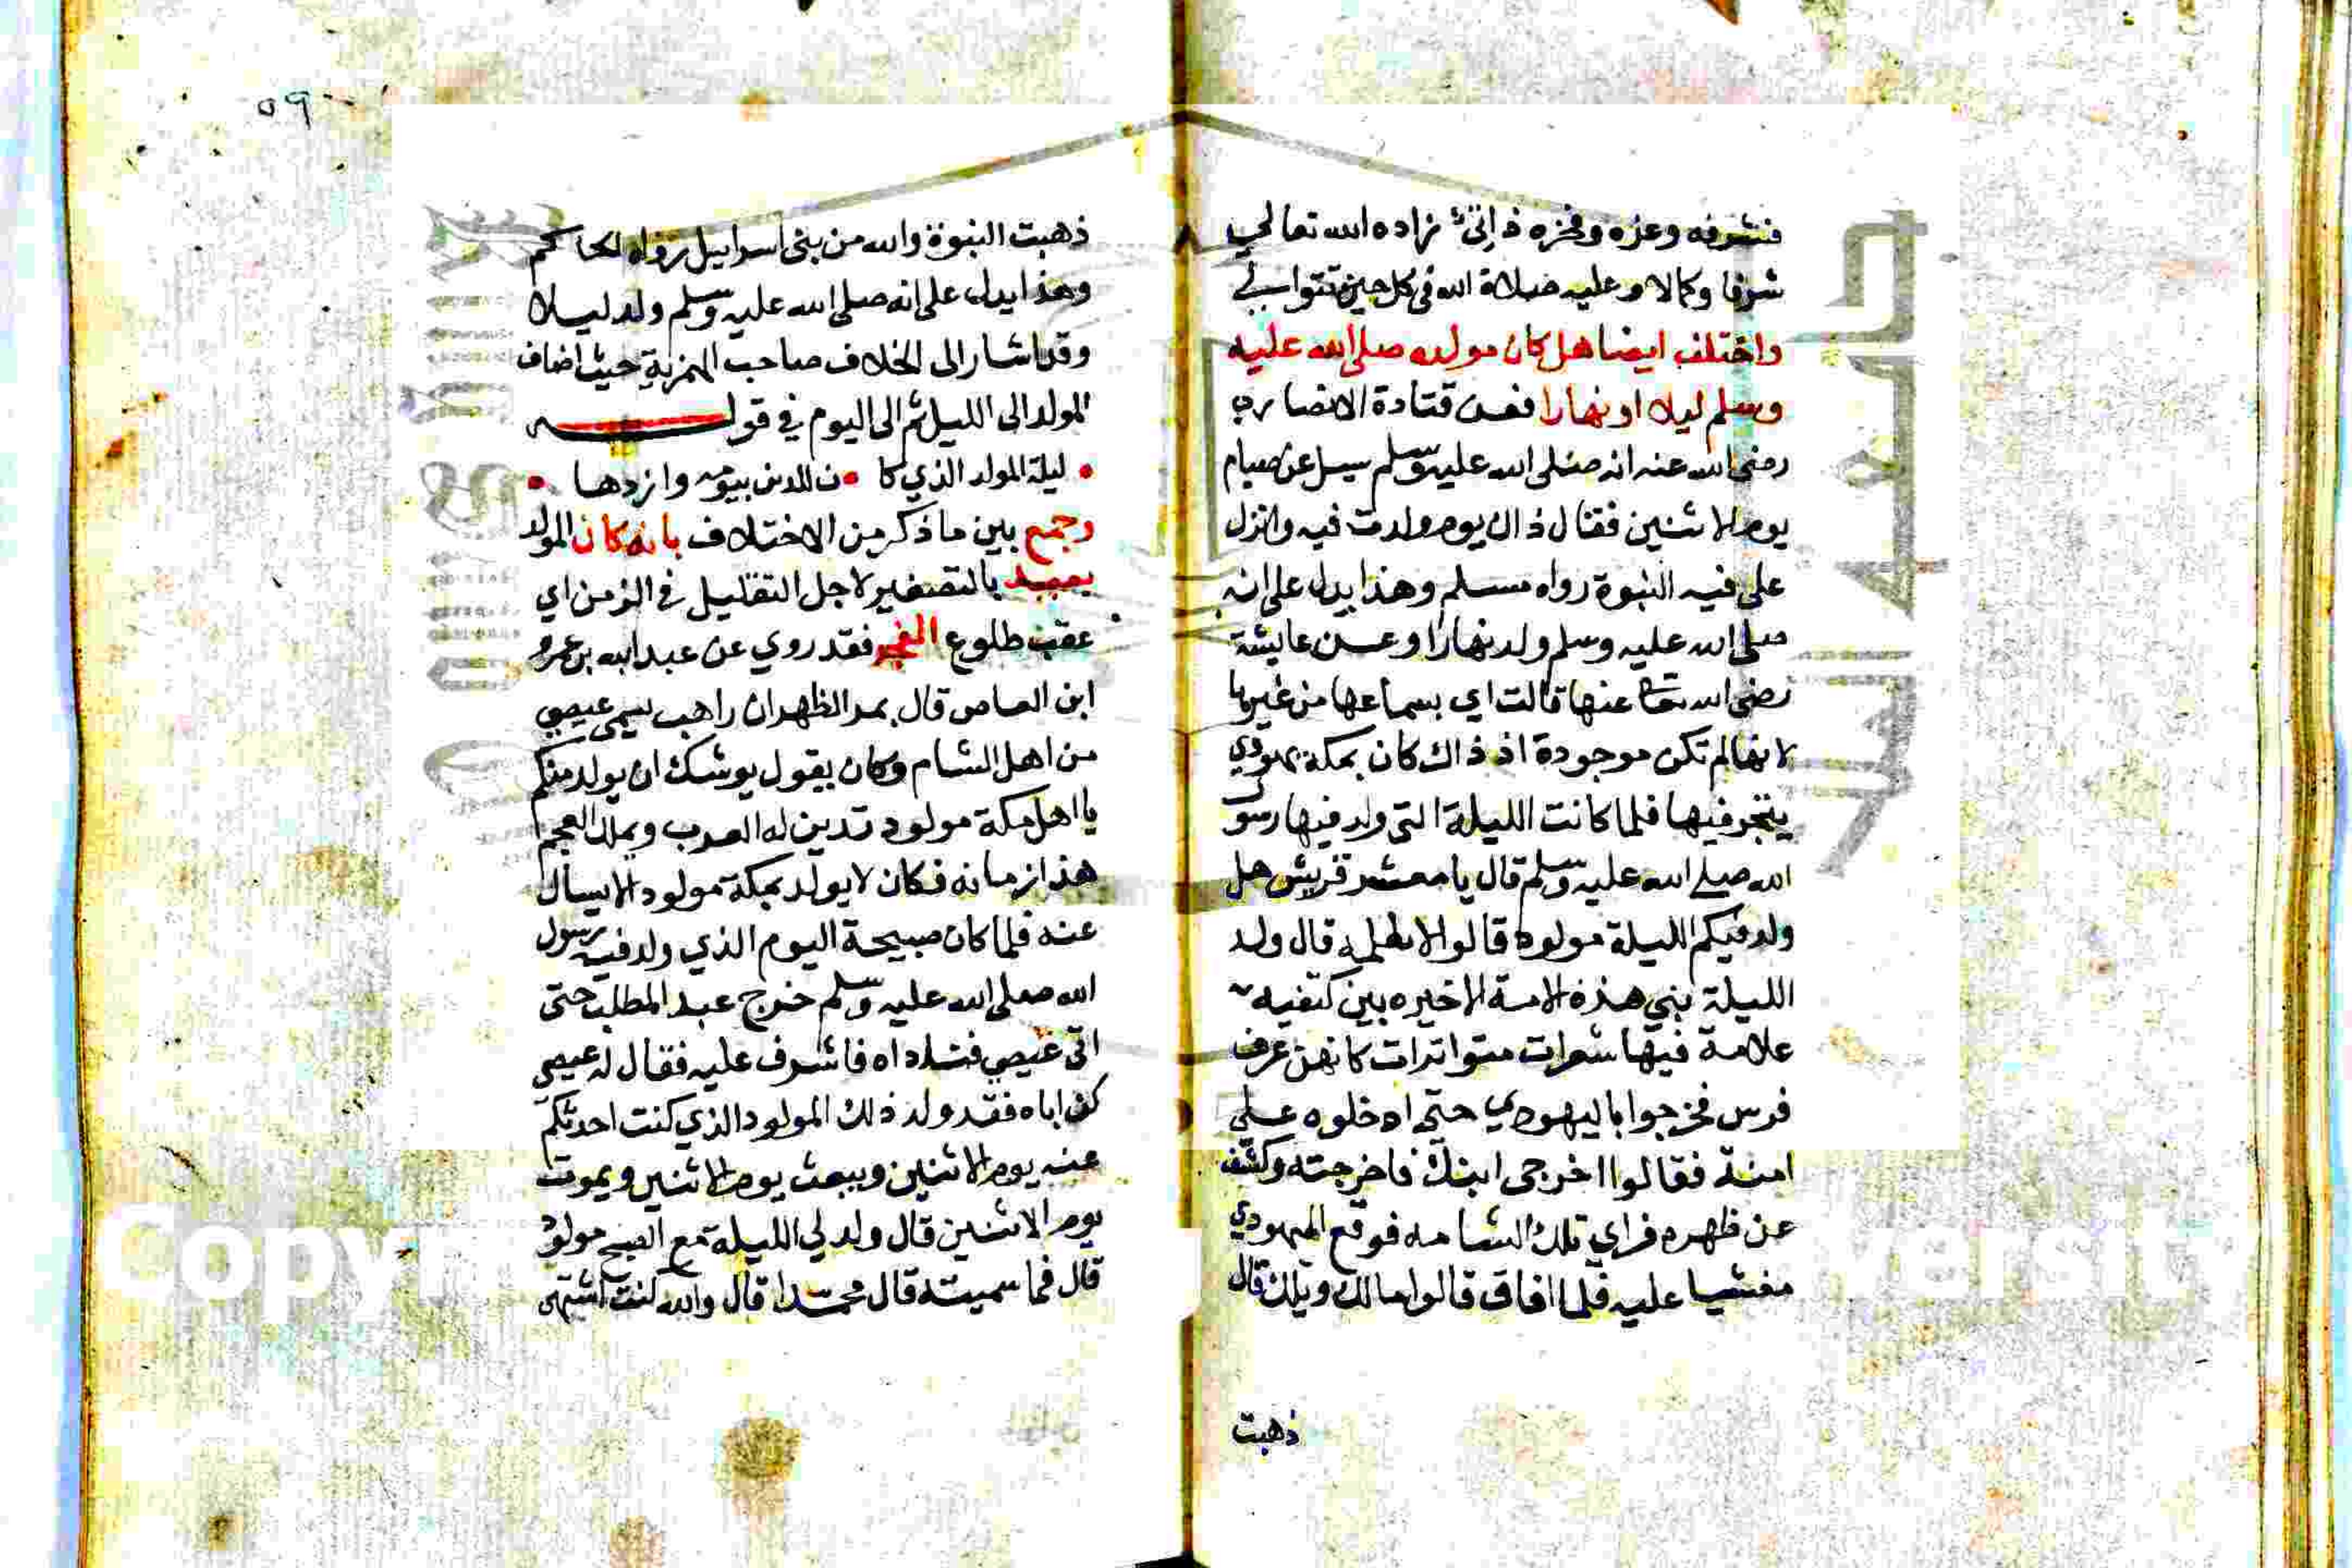 فشرفه وعزه وفخره ذاتي زاده الله تعالي
شرفا وكمالا وعليه صلاة الله في كل حين تتوالي
واختلف ايضا هل كان مولده صلى الله عليه
وسلم ليلا او نهارا فعن قتادة الانصاري
رضى الله عنه انه صلى الله عليه وسلم سيل عن صيام
يوم الاثنين فقال ذاك يوم ولدت فيه وانزل
على فيه النبوة رواه مسلم وهذا يدل على انه
صلى الله عليه وسلم ولد نهارا وعن عايشة
رضى الله تعا عنها قالت اي بسماعها من غيرها
لانها لم تكن موجودة اذ ذاك كان بمكة يهودي
يتجر فيها فلما كانت الليلة التي ولد فيها رسول
الله صلى الله عليه وسلم قال يا معشر قريش هل
ولد فيكم الليلة مولود قالوا لا نعلمه قال ولد
الليلة نبي هذه الامة الاخيره بين كتفيه
علامة فيها شعرات متواترات كانهن عرف
فرس فخرجوا باليهودي حتى ادخلوه على
امنة فقالوا اخرجي ابنك فاخرجته وكشف
عن ظهره فراي تلك الشامه فوقع اليهودي
مغشيا عليه فلما افاق قالوا مالك ويلك قال
ذهبت
٥٩
ذهبت النبوة والله من بني اسراييل رواه الحاكم
وهذا يدل على انه صلى الله عليه وسلم ولد ليلا
وقد اشار الى الخلاف صاحب الهمزية حيث اضاف
المولد الى الليل ثم الى اليوم في قوله
ليلة المولد الذي كا ن للدين بيومه وازدها
وجمع بين ما ذكر من الاختلاف بانه كان المولد
بعيد بالتصغير لاجل التقليل في الزمن اي
عقب طلوع الفجر فقد روي عن عبد الله بن عمرو
ابن العاص قال بمر الظهران راهب يسمى عيصي
من اهل الشام وكان يقول يوشك ان يولد منكم
يا اهل مكة مولود تدين له العرب ويملك العجم
هذا زمانه فكان لا يولد بمكة مولود الا يسال
عنه فلما كان صبيحة اليوم الذي ولد فيه رسول
الله صلى الله عليه وسلم خرج عبد المطلب حتى
اتى عيصي فناداه فاشرف عليه فقال له عيصي
كن اباه فقد ولد ذلك المولود الذي كنت احدثكم
عنه يوم الاثنين ويبعث يوم الاثنين ويموت
يوم الاثنين قال ولد لي الليلة مع الصبح مولود
قال فما سميته قال محمدا قال والله كنت اشتهى